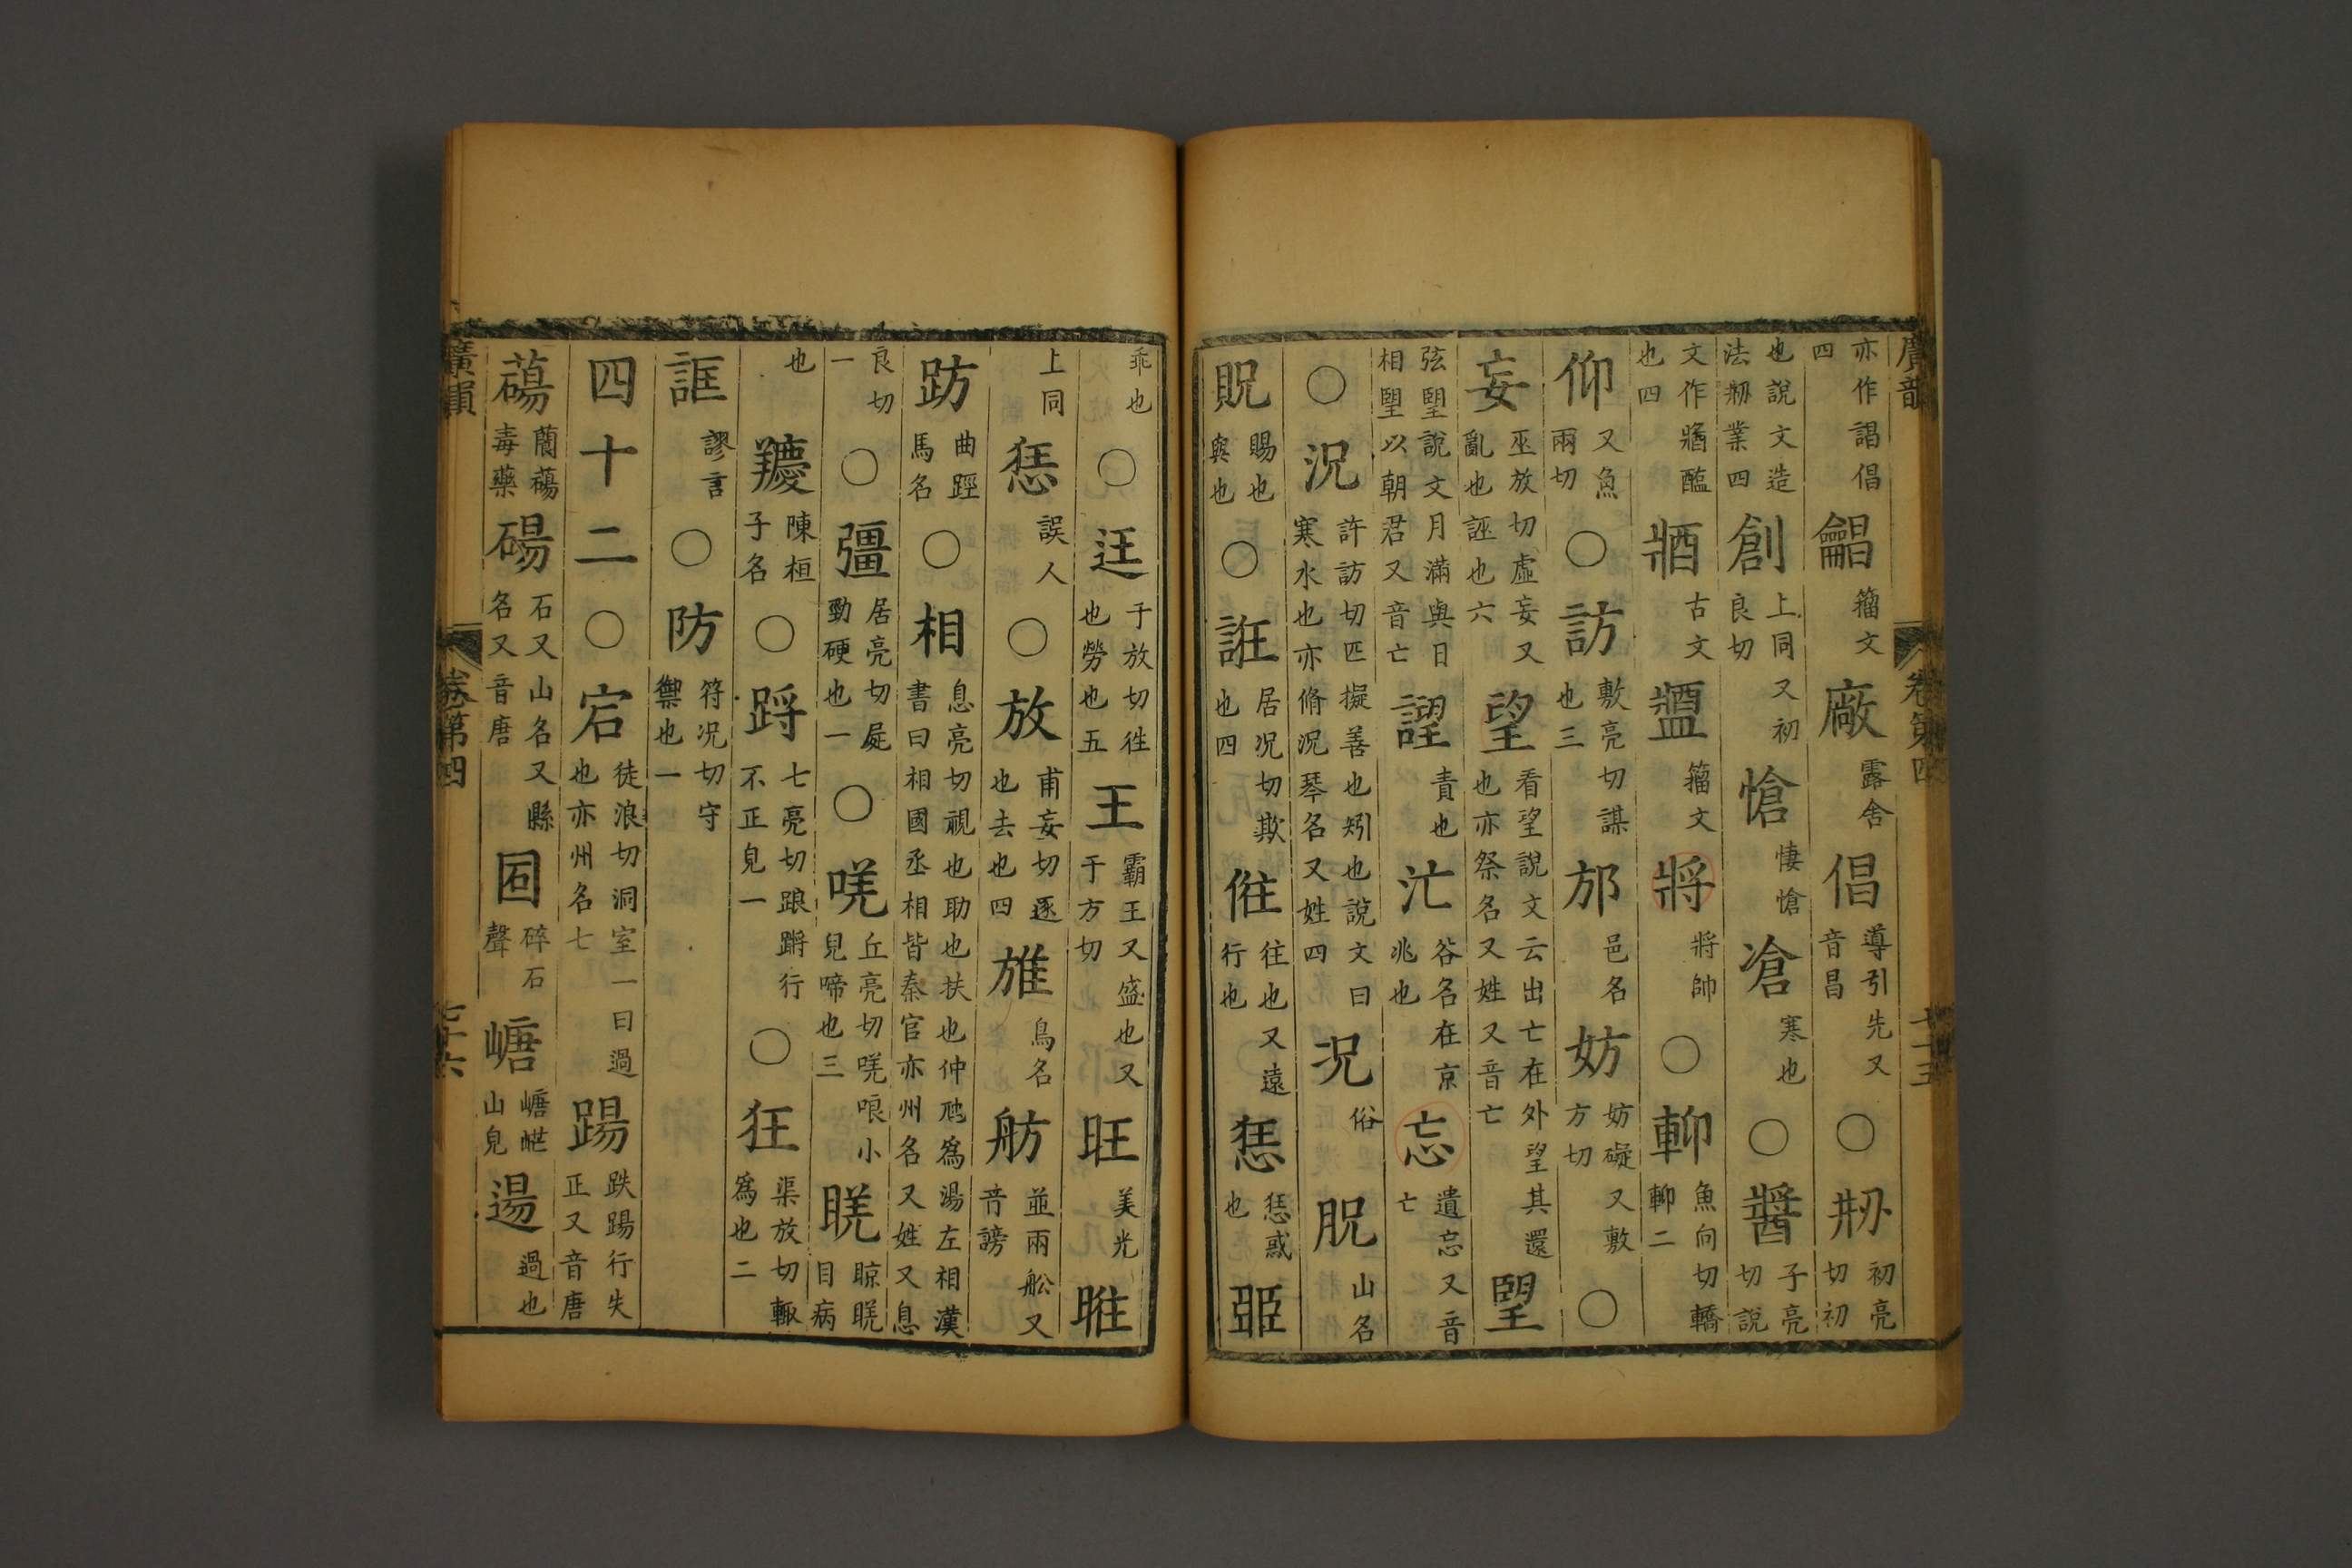 廣韻 卷第四 七十五
亦作誯倡四 龥籀文 廠露舍 倡導引先又音昌 ○ 刱初亮切初
也說文造法刱業四 創上同又初良切 愴悽愴 凔寒也 ○ 醬子亮切說
文作𨡓醢也四 𤖛古文 𤖙籀文 將將帥 ○ 䩕魚向切轎䩕二
仰又魚兩切 ○ 訪敷亮切謀也三 邡邑名 妨妨礙又敷方切 ○
妄巫放切虛妄又亂也誣也六 望看望說文云出亡在外望其還也亦祭名又姓又音亡 朢
弦朢說文月滿與日相朢以朝君又音亡 謼責也 汒谷名在京兆也 忘遺忘又音亡
○ 況許訪切匹擬善也矧也說文曰寒水也亦脩況琴名又姓四 况俗 䏏山名
貺賜也與也 ○ 誑居況切欺也四 俇往也又遠行也 惩惩惑也 臦
乖也 ○ 迋于放切往也勞也五 王霸王又盛也又于方切 旺美光 暀
上同 惩誤人 ○ 放甫妄切逐也去也四 䲱鳥名 舫並兩舩又音謗
趽曲脛馬名 ○ 相息亮切視也助也扶也仲虺爲湯左相漢書曰相國丞相皆秦官亦州名又姓又息
良切一 ○ 彊居亮切屍勁硬也一 ○ 唴丘亮切唴哴小兒啼也三 䁁䁁目病
也 𢥞陳桓子名 ○ 蹡七亮切踉蹡行不正皃一 ○ 狂渠放切輒爲也二
誆謬言 ○ 防符况切守禦也一
四十二 ○ 宕徒浪切洞室一曰過也亦州名七 踼跌踼行失正又音唐
蕩蘭蕩毒藥 碭石又山名又縣名又音唐 㘯碎石聲 嵣嵣㟐山皃 逿過也
廣韻 卷第四 七十六